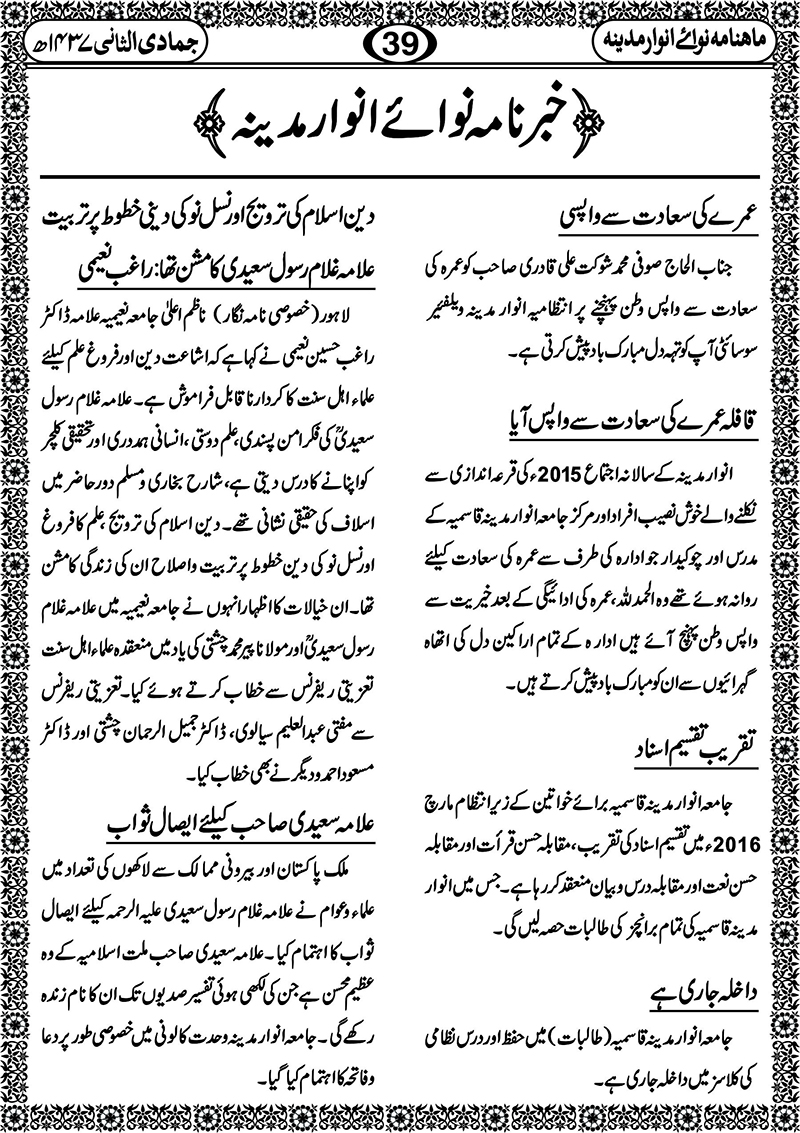 ماہنامہ نوائے انوار مدینہ
39
جمادی الثانی ۱۴۳۷ھ
خبرنامہ نوائے انوار مدینہ
عمرے کی سعادت سے واپسی
جناب الحاج صوفی محمد شوکت علی قادری صاحب کو عمرہ کی
سعادت سے واپس وطن پہنچنے پر انتظامیہ انوار مدینہ ویلفئیر
سوسائٹی آپ کو تہہ دل مبارک باد پیش کرتی ہے۔
قافلہ عمرے کی سعادت سے واپس آیا
انوار مدینہ کے سالانہ اجتماع 2015ء کی قرعہ اندازی سے
نکلنے والے خوش نصیب افراد اور مرکز جامعہ انوار مدینہ قاسمیہ کے
مدرس اور چوکیدار جو ادارہ کی طرف سے عمرہ کی سعادت کیلئے
روانہ ہوئے تھے وہ الحمد للہ، عمرہ کی ادائیگی کے بعد خیریت سے
واپس وطن پہنچ آئے ہیں ادارہ کے تمام اراکین دل کی اتھاہ
گہرائیوں سے ان کو مبارک باد پیش کرتے ہیں۔
تقریب تقسیم اسناد
جامعہ انوار مدینہ قاسمیہ برائے خواتین کے زیر انتظام مارچ
2016ء میں تقسیم اسناد کی تقریب، مقابلہ حسن قرأت اور مقابلہ
حسن نعت اور مقابلہ درس و بیان منعقد کر رہا ہے۔ جس میں انوار
مدینہ قاسمیہ کی تمام برانچز کی طالبات حصہ لیں گی۔
داخلہ جاری ہے
جامعہ انوار مدینہ قاسمیہ (طالبات) میں حفظ اور درس نظامی
کی کلاسز میں داخلہ جاری ہے۔
دین اسلام کی ترویج اور نسل نو کی دینی خطوط پر تربیت
علامہ غلام رسول سعیدی کا مشن تھا: راغب نعیمی
لاہور (خصوصی نامہ نگار) ناظم اعلیٰ جامعہ نعیمیہ علامہ ڈاکٹر
راغب حسین نعیمی نے کہا ہے کہ اشاعت دین اور فروغ علم کیلئے
علماء اہل سنت کا کردار ناقابل فراموش ہے۔ علامہ غلام رسول
سعیدیؒ کی فکر امن پسندی، علم دوستی، انسانی ہمدردی اور تحقیقی کلچر
کو اپنانے کا درس دیتی ہے، شارح بخاری و مسلم دور حاضر میں
اسلاف کی حقیقی نشانی تھے۔ دین اسلام کی ترویج، علم کا فروغ
اور نسل نو کی دین خطوط پر تربیت و اصلاح ان کی زندگی کا مشن
تھا۔ ان خیالات کا اظہار انہوں نے جامعہ نعیمیہ میں علامہ غلام
رسول سعیدیؒ اور مولانا پیر محمد چشتی کی یاد میں منعقدہ علماء اہل سنت
تعزیتی ریفرنس سے خطاب کرتے ہوئے کیا۔ تعزیتی ریفرنس
سے مفتی عبدالعلیم سیالوی، ڈاکٹر جمیل الرحمان چشتی اور ڈاکٹر
مسعود احمد و دیگر نے بھی خطاب کیا۔
علامہ سعیدی صاحب کیلئے ایصال ثواب
ملک پاکستان اور بیرونی ممالک سے لاکھوں کی تعداد میں
علماء و عوام نے علامہ غلام رسول سعیدی علیہ الرحمہ کیلئے ایصال
ثواب کا اہتمام کیا۔ علامہ سعیدی صاحب ملت اسلامیہ کے وہ
عظیم محسن ہے جن کی لکھی ہوئی تفسیر صدیوں تک ان کا نام زندہ
رکھے گی۔ جامعہ انوار مدینہ وحدت کالونی میں خصوصی طور پر دعا
و فاتحہ کا اہتمام کیا گیا۔